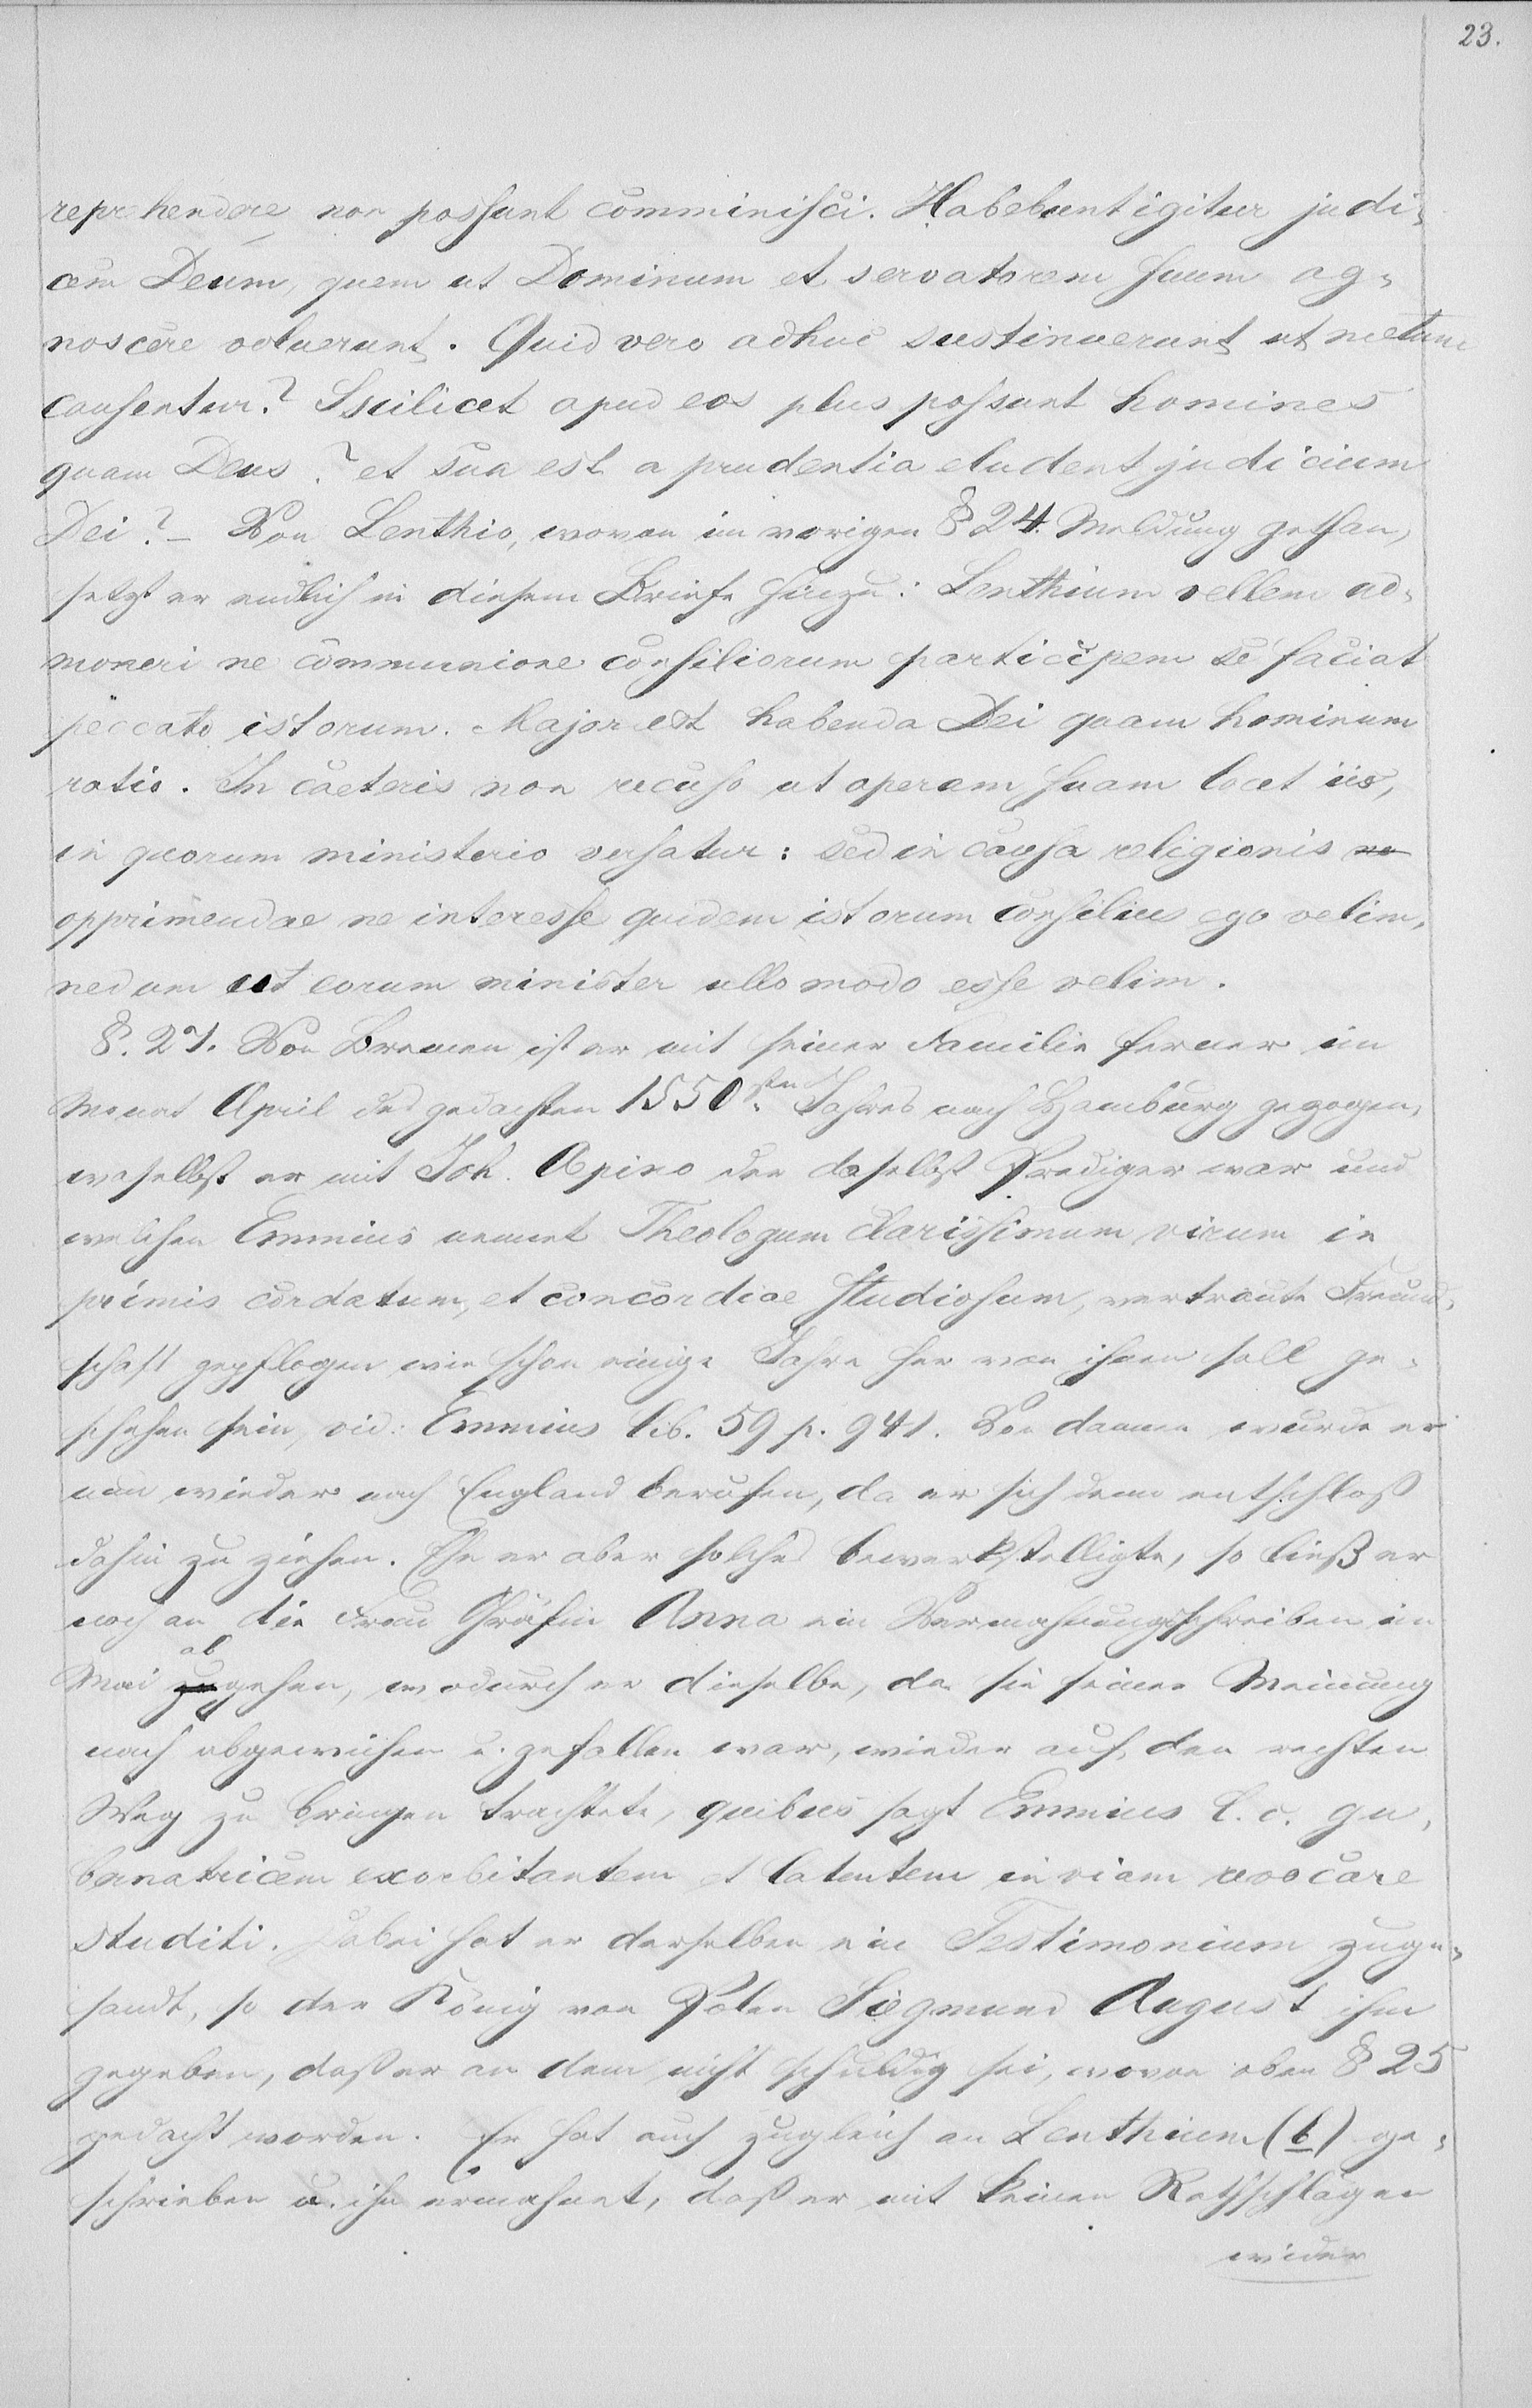 23.
reprehendere non possunt comminisci. Habebunt igitur judi-
cem Deum, quem ut Dominum et servatorem suum ag-
noscere voluerunt. Quid vero adhuc sustinuerunt ut metum
causentur? Sscilicet apud eos plus possunt homines
quam Deus? et sua est a prudentia eludent judicium
Dei? – Von Lenthio, wovon im vorigen § 24. Meldung gethan,
setzt er endlich in diesem Briefe hinzu: Lenthium vellem ad-
moneri ne communione consiliorum participem se faciat
peccato istorum. Major est habenda Dei quam hominum
ratio. In caeteris non recuso ut operam suam locet iis,
in quorum ministerio versatur: sed in causa religionis
opprimendae ne interesse quidem istorum consilius ego velim,
nedum ut eorum minister ullo modo esse velim.
§. 27. Von Bremen ist er mit seiner Familie ferner im
Monat April des gedachten 1550sten Jahres nach Hamburg gezogen,
woselbst er mit Joh. Apino der daselbst Prediger war und
welchen Emmius nennet Theologum clarissimum virum in
primis cordatum, et concordiae studiosum, vertraute Freund-
schaft gepflogen wie schon einige Jahre her von ihnen soll ge-
schehen sein, vid: Emmius lib. 59 p. 941. Von dannen wurde er
nun wieder nach England berufen, da er sich denn entschloß
dahin zu ziehen. Ehe er aber solches bewerkstelligte, so ließ er
noch an die Frau Gräfin Anna ein Vermahnungsschreiben im
Mai abgehen, wodurch er dieselbe, da sie seiner Meinung
nach abgewichen u. gefallen war, wieder auf den rechten
Weg zu bringen trachtete, quibus sagt Emmius l. c. gu-
bernatricem exorbitantem et labentem in viam revocare
studiti. Dabei hat er derselben ein Testimonium zuge-
sandt, so der König von Polen Siegmund August ihm
gegeben, daß er an dem nicht schuldig sei, wovon oben § 25
gedacht worden. Er hat auch zugleich an Lenthium (b) ge-
schrieben u. ihn ermahnet, daß er mit keinen Rathschlägen
wider